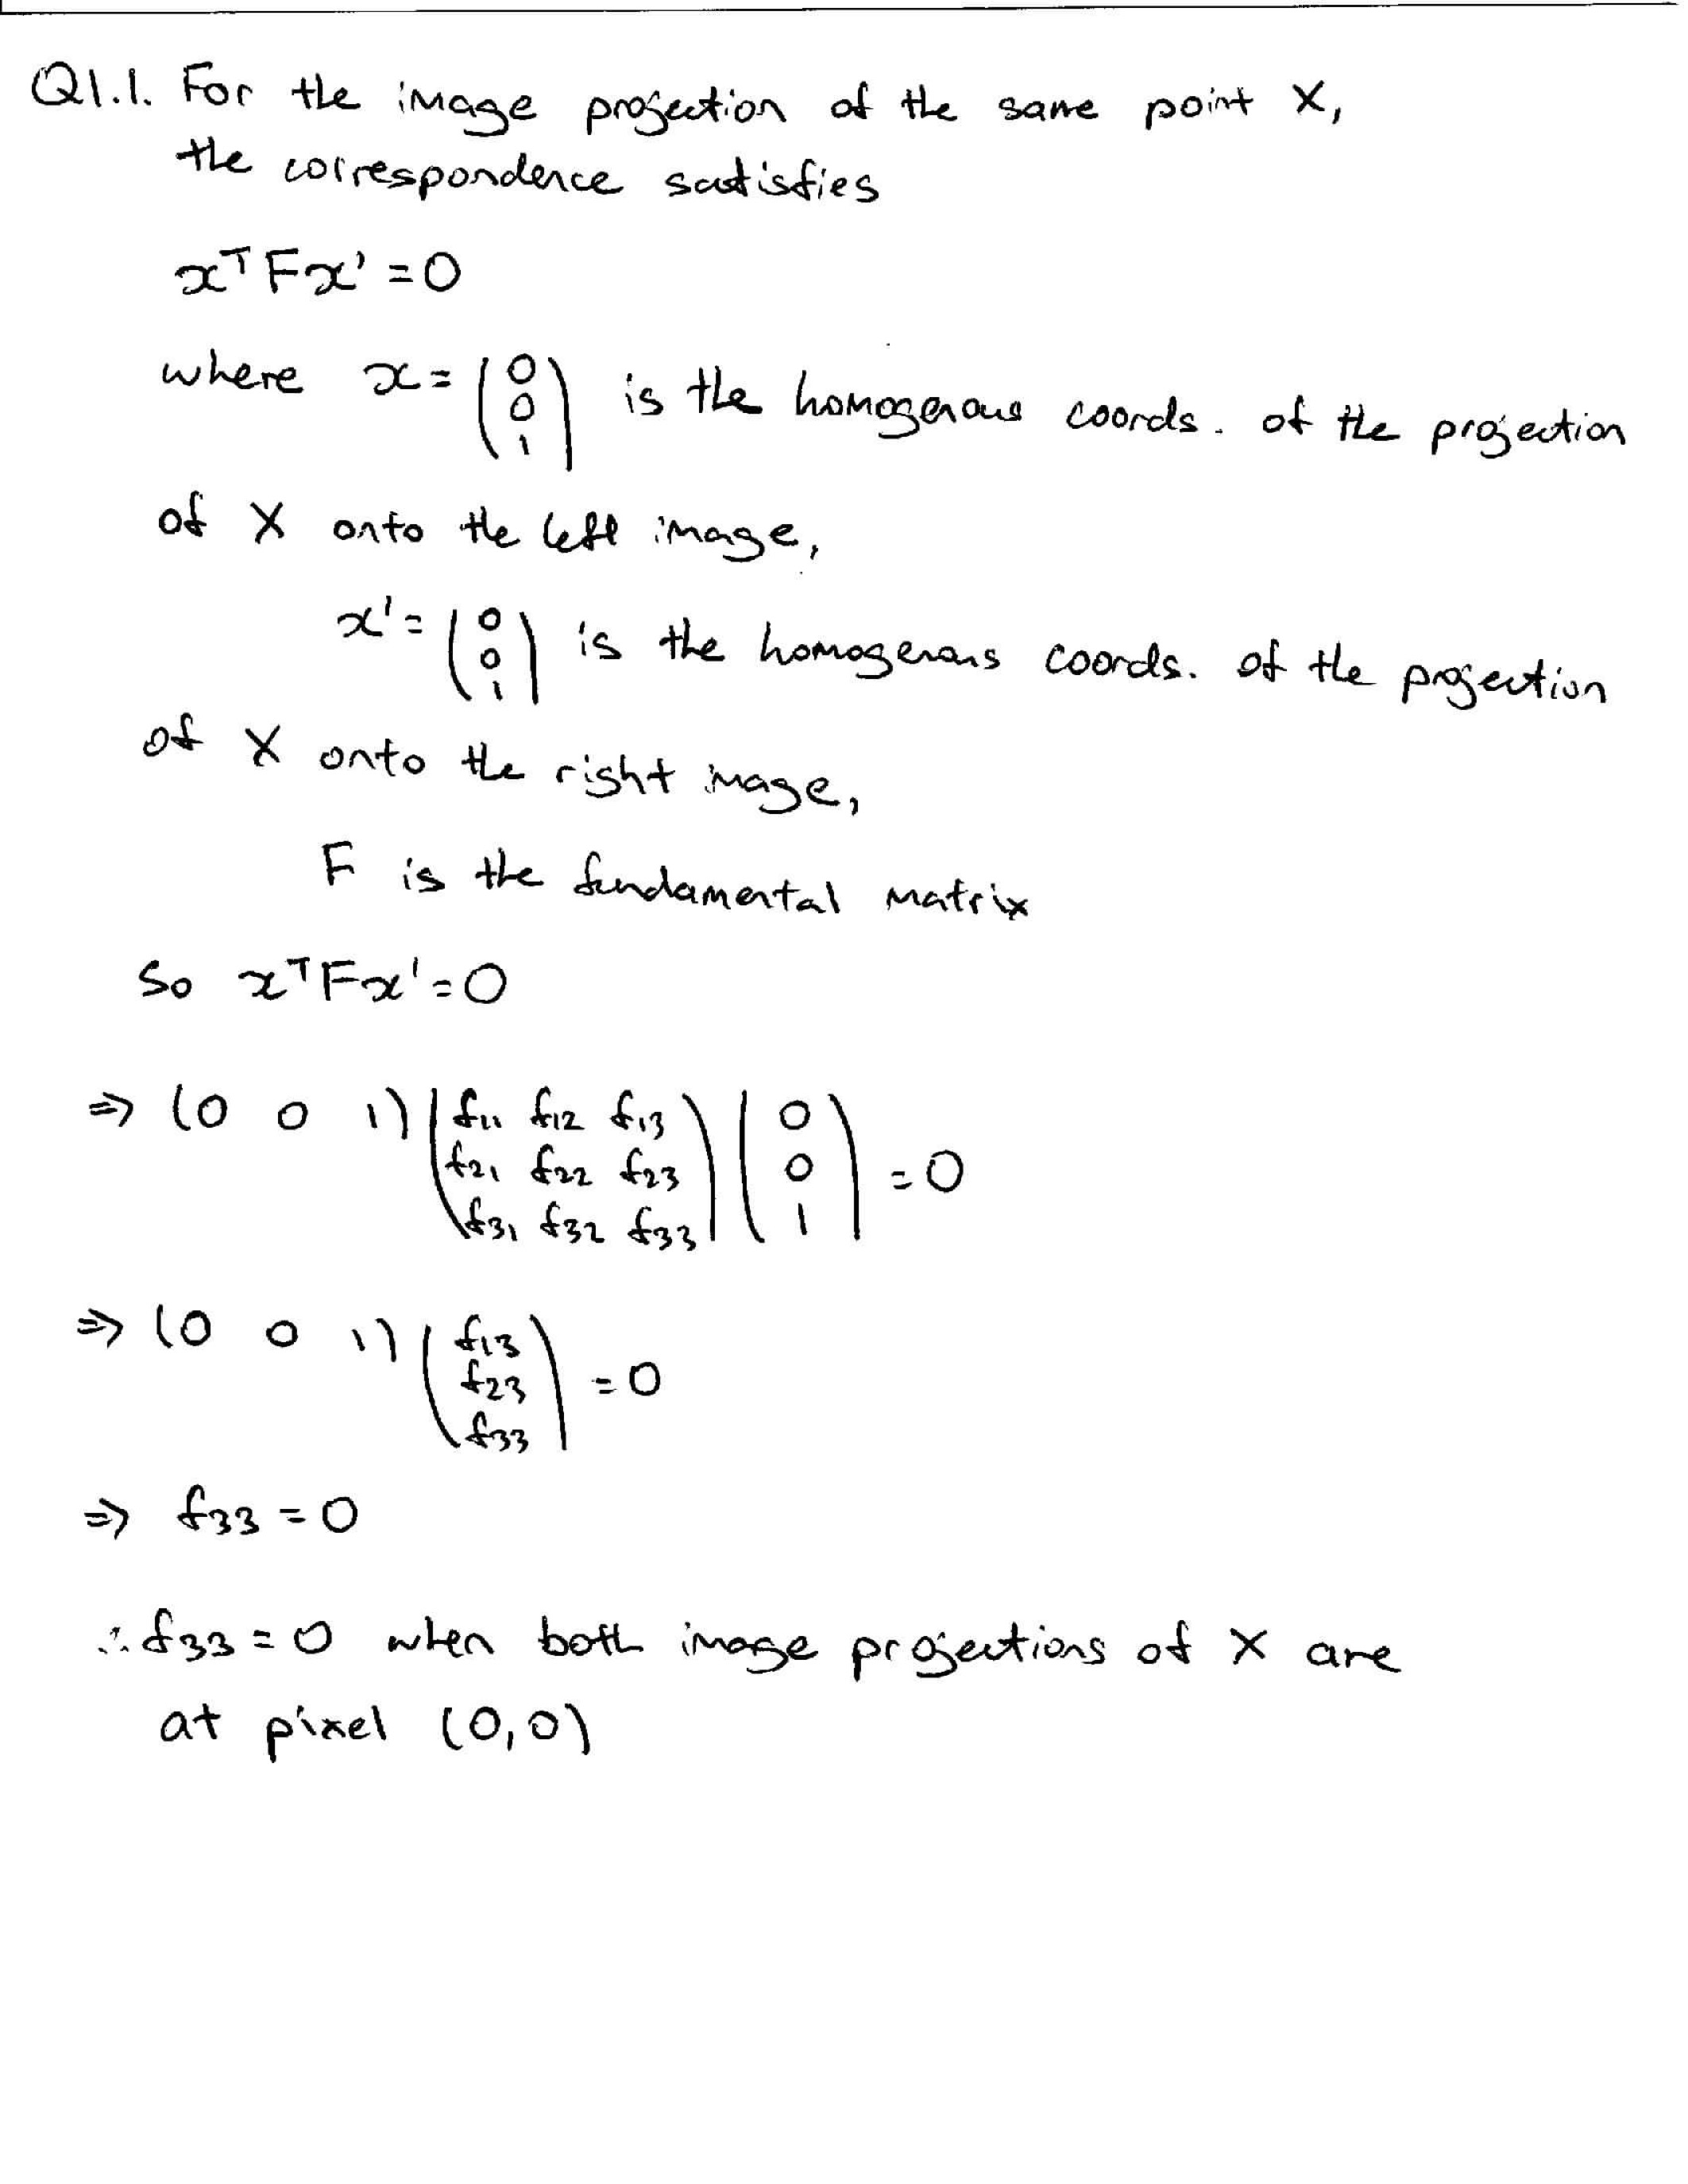 Q1.1. For the image projection of the same point X,
the correspondence satisfies
xᵀFx' = 0
where x = (0 0 1) is the homogenous coords. of the projection
of X onto the left image,
x' = (0 0 1) is the homogenous coords. of the projection
of X onto the right image,
F is the fundamental matrix
So xᵀFx' = 0
⇒ (0 0 1) (f11 f12 f13
f21 f22 f23
f31 f32 f33) (0 0 1) = 0
⇒ (0 0 1) (f13
f23
f33) = 0
⇒ f33 = 0
∴ f33 = 0 when both image projections of X are
at pixel (0,0)